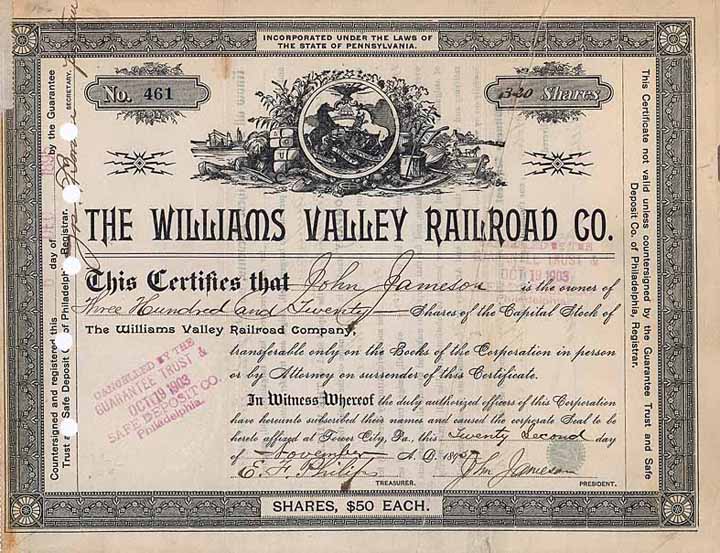 INCORPORATED UNDER THE LAWS OF
THE STATE OF PENNSYLVANIA.
No. 461
320 Shares
THE WILLIAMS VALLEY RAILROAD CO.
This Certifies that John Jameson is the owner of
Three Hundred and Twenty Shares of the Capital Stock of
The Williams Valley Railroad Company,
transferable only on the Books of the Corporation in person
or by Attorney on surrender of this Certificate.
In Witness Whereof the duly authorized officers of this Corporation
have hereunto subscribed their names and caused the corporate Seal to be
hereto affixed at Tower City, Pa., this Twenty Second day
of November A. D. 189
E. F. Philip
TREASURER.
Jno. Jameson
PRESIDENT.
SHARES, $50 EACH.
CANCELLED BY THE
GUARANTEE TRUST &
OCT 19 1903
SAFE DEPOSIT CO.
Philadelphia.
CANCELLED BY THE
GUARANTEE TRUST &
OCT 19 1903
Philadelphia.
Countersigned and registered this day of DEC 189 by the Guarantee
Trust and Safe Deposit Co. of Philadelphia, Registrar.
SECRETARY.
This Certificate not valid unless countersigned by the Guarantee Trust and Safe
Deposit Co. of Philadelphia, Registrar.